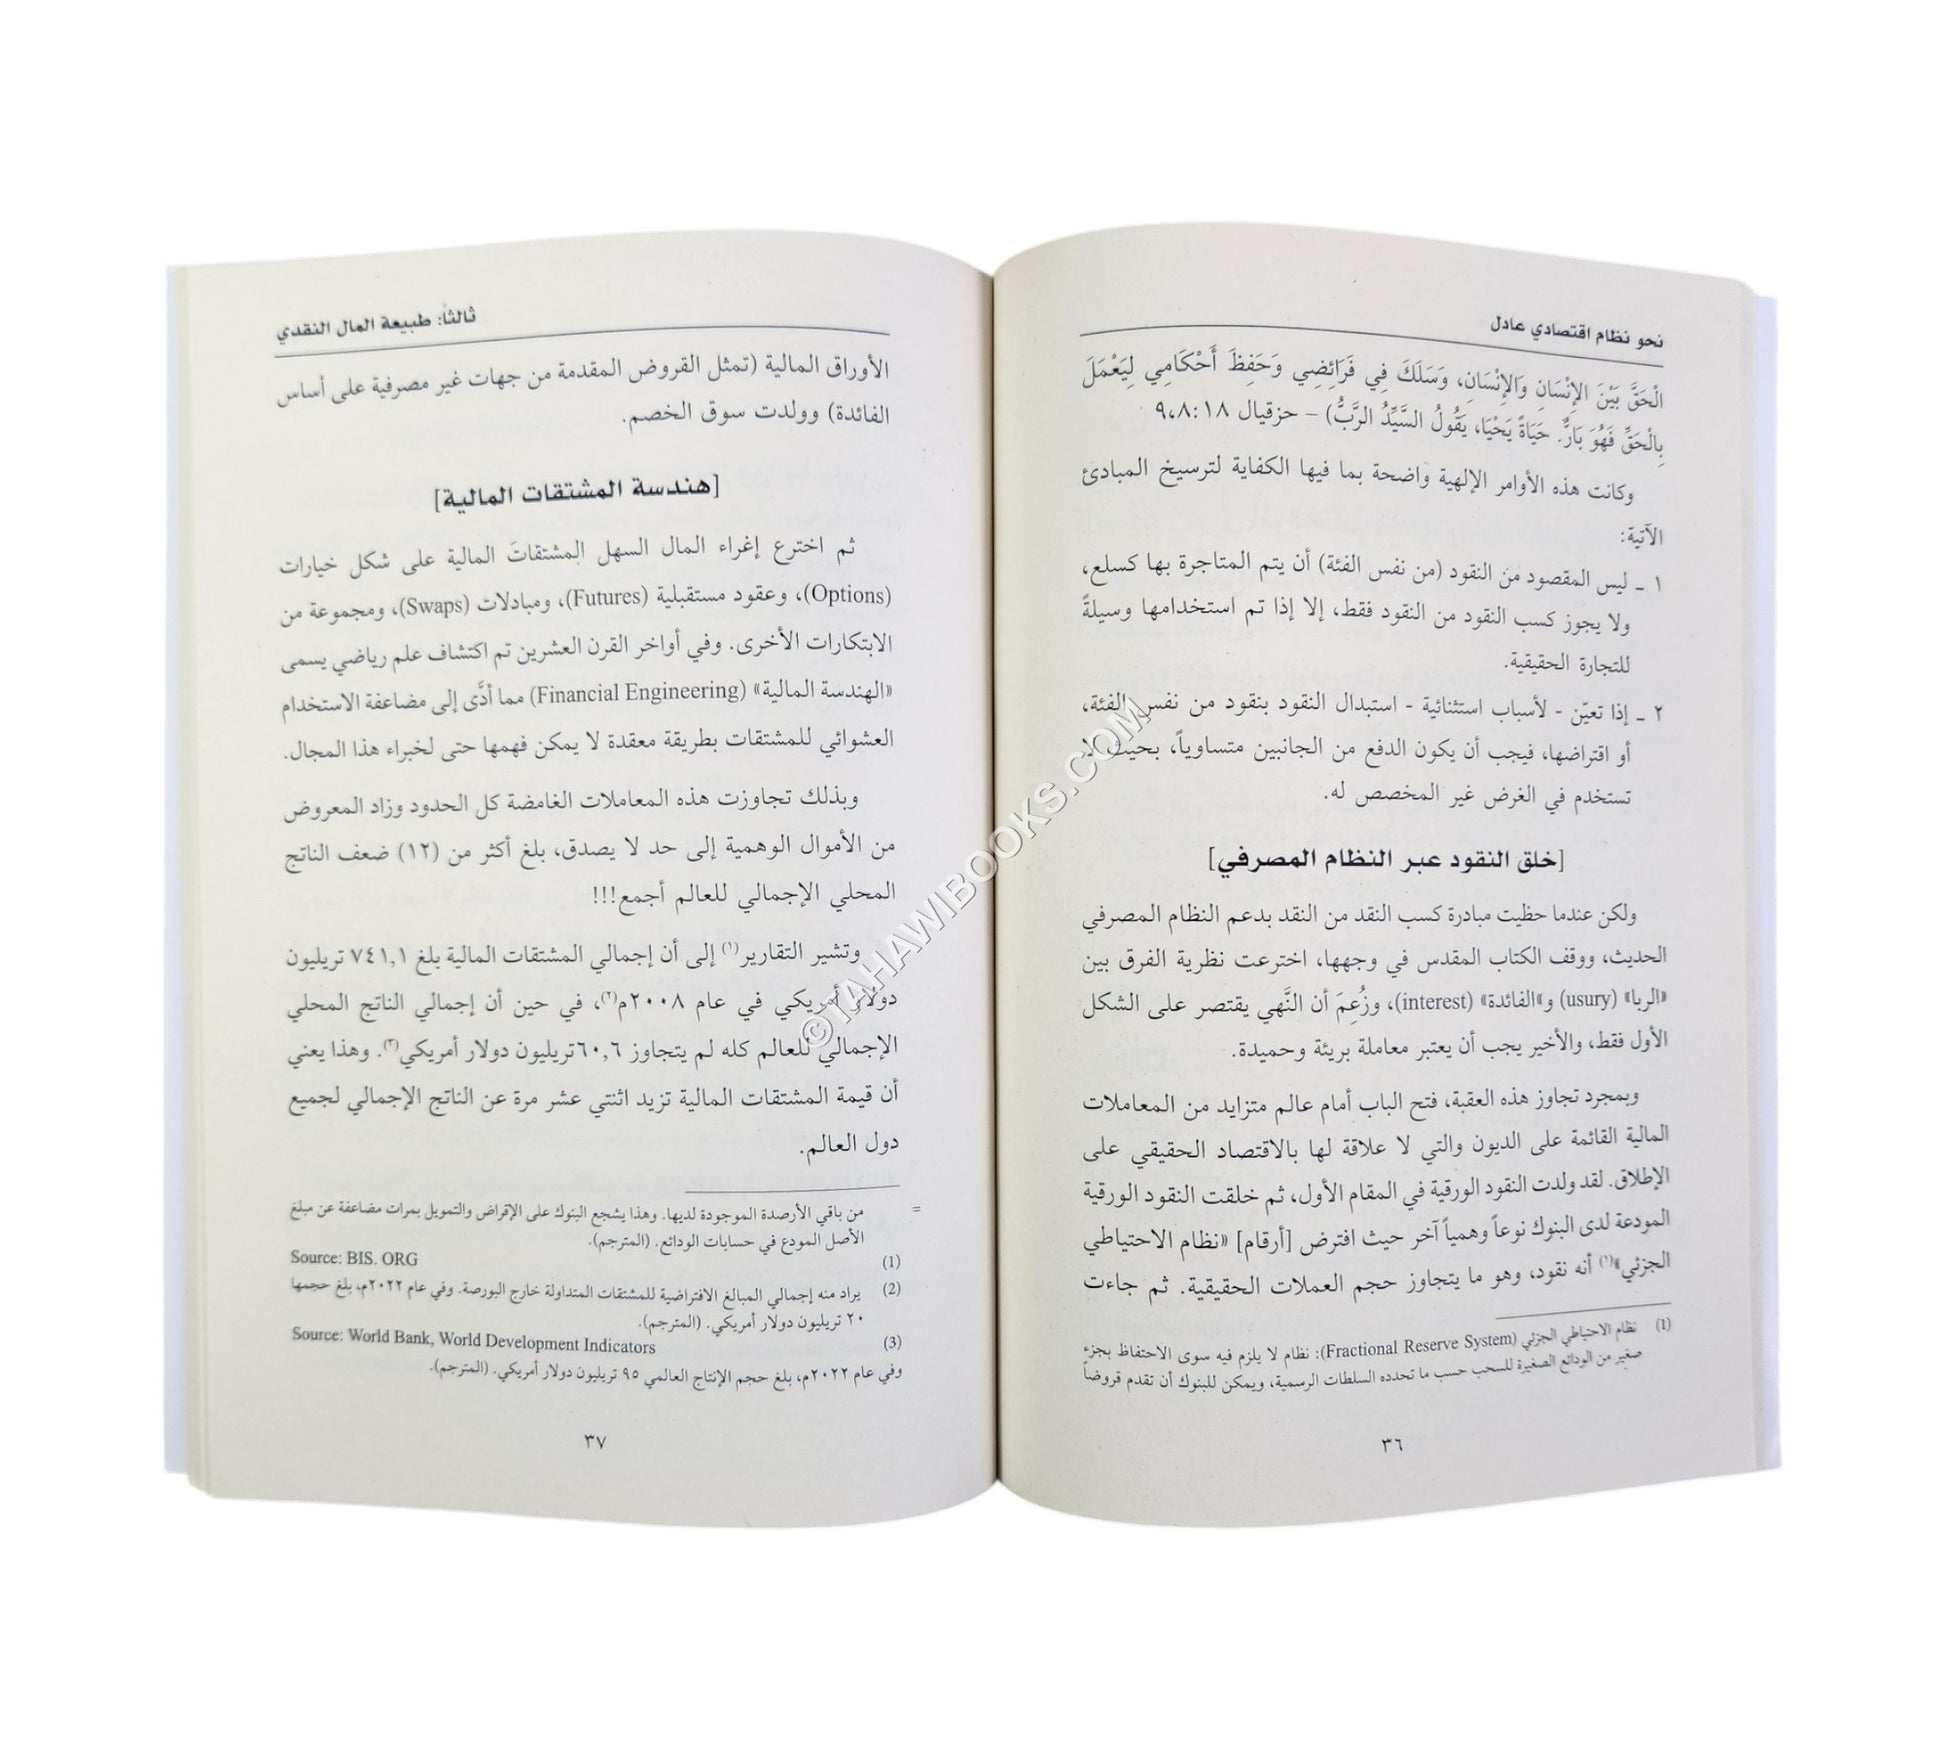 نحو نظام اقتصادي عادل
الْحَقَّ بَيْنَ الإِنْسَانِ وَالإِنْسَانِ، وَسَلَكَ فِي فَرَائِضِي وَحَفِظَ أَحْكَامِي لِيَعْمَلَ
بِالْحَقِّ فَهُوَ بَارٌّ. حَيَاةً يَحْيَا، يَقُولُ السَّيِّدُ الرَّبُّ) – حزقيال ١٨: ٨،٩
وكانت هذه الأوامر الإلهية واضحة بما فيها الكفاية لترسيخ المبادئ
الآتية:
١ ـ ليس المقصود من النقود (من نفس الفئة) أن يتم المتاجرة بها كسلع،
ولا يجوز كسب النقود من النقود فقط، إلا إذا تم استخدامها وسيلةً
للتجارة الحقيقية.
٢ ـ إذا تعيّن - لأسباب استثنائية - استبدال النقود بنقود من نفس الفئة،
أو اقتراضها، فيجب أن يكون الدفع من الجانبين متساوياً، بحيث لا
تستخدم في الغرض غير المخصص له.
[خلق النقود عبر النظام المصرفي]
ولكن عندما حظيت مبادرة كسب النقد من النقد بدعم النظام المصرفي
الحديث، ووقف الكتاب المقدس في وجهها، اخترعت نظرية الفرق بين
«الربا» (usury) و«الفائدة» (interest)، وزُعِمَ أن النَّهي يقتصر على الشكل
الأول فقط، والأخير يجب أن يعتبر معاملة بريئة وحميدة.
وبمجرد تجاوز هذه العقبة، فتح الباب أمام عالم متزايد من المعاملات
المالية القائمة على الديون والتي لا علاقة لها بالاقتصاد الحقيقي على
الإطلاق. لقد ولدت النقود الورقية في المقام الأول، ثم خلقت النقود الورقية
المودعة لدى البنوك نوعاً وهمياً آخر حيث افترض [أرقام] «نظام الاحتياطي
الجزئي»(١) أنه نقود، وهو ما يتجاوز حجم العملات الحقيقية. ثم جاءت
(١) نظام الاحتياطي الجزئي (Fractional Reserve System): نظام لا يلزم فيه سوى الاحتفاظ بجزء
صغير من الودائع الصغيرة للسحب حسب ما تحدده السلطات الرسمية، ويمكن للبنوك أن تقدم قروضاً
٣٦
ثالثاً: طبيعة المال النقدي
الأوراق المالية (تمثل القروض المقدمة من جهات غير مصرفية على أساس
الفائدة) وولدت سوق الخصم.
[هندسة المشتقات المالية]
ثم اخترع إغراء المال السهل المشتقاتَ المالية على شكل خيارات
(Options)، وعقود مستقبلية (Futures)، ومبادلات (Swaps)، ومجموعة من
الابتكارات الأخرى. وفي أواخر القرن العشرين تم اكتشاف علم رياضي يسمى
«الهندسة المالية» (Financial Engineering) مما أدَّى إلى مضاعفة الاستخدام
العشوائي للمشتقات بطريقة معقدة لا يمكن فهمها حتى لخبراء هذا المجال.
وبذلك تجاوزت هذه المعاملات الغامضة كل الحدود وزاد المعروض
من الأموال الوهمية إلى حد لا يصدق، بلغ أكثر من (١٢) ضعف الناتج
المحلي الإجمالي للعالم أجمع!!!
وتشير التقارير(١) إلى أن إجمالي المشتقات المالية بلغ ٧٤١,١ تريليون
دولار أمريكي في عام ٢٠٠٨م(٢)، في حين أن إجمالي الناتج المحلي
الإجمالي للعالم كله لم يتجاوز ٦٠,٦تريليون دولار أمريكي(٣). وهذا يعني
أن قيمة المشتقات المالية تزيد اثنتي عشر مرة عن الناتج الإجمالي لجميع
دول العالم.
= من باقي الأرصدة الموجودة لديها. وهذا يشجع البنوك على الإقراض والتمويل بمرات مضاعفة عن مبلغ
الأصل المودع في حسابات الودائع. (المترجم).
(1) Source: BIS. ORG
(2) يراد منه إجمالي المبالغ الافتراضية للمشتقات المتداولة خارج البورصة. وفي عام ٢٠٢٢م، بلغ حجمها
٢٠ تريليون دولار أمريكي. (المترجم).
(3) Source: World Bank, World Development Indicators
وفي عام ٢٠٢٢م، بلغ حجم الإنتاج العالمي ٩٥ تريليون دولار أمريكي. (المترجم).
٣٧
©TAHAWIBOOKS.COM